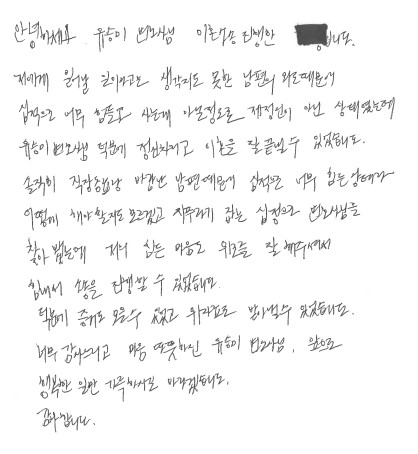 안녕하세요 유승미 변호사님 이혼소송 진행한 입니다.
저에게 일어날 일이라고는 생각지도 못한 남편의 외도때문에
심적으로 너무 힘들고 사는게 아닐정도로 제정신이 아닌 상태였는데
유승미 변호사님 덕분에 정신차리고 이혼을 잘 끝낼 수 있었습니다.
솔직히 직장상사랑 바람난 남편때문에 심적으로 너무 힘든 상태라
어떻게 해야할지도 모르겠고 지푸라기 잡는 심정으로 변호사님을
찾아 뵀는데 저의 힘든 마음도 위로를 잘 해주셔서
힘내서 소송을 진행할 수 있었습니다.
덕분에 증거도 모을수 있었고 위자료도 받아낼수 있었습니다.
너무 감사드리고 마음 따뜻하신 유승미 변호사님, 앞으로
행복한 일만 가득하시길 바라겠습니다.
감사합니다.